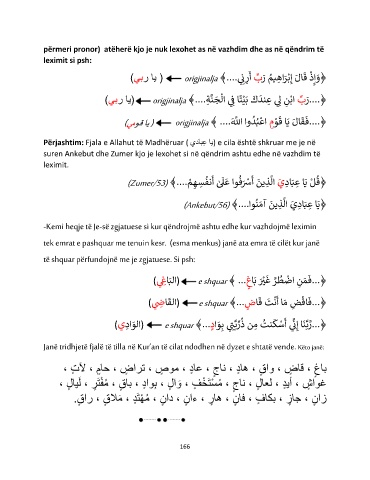 përmeri pronor) atëherë kjo je nuk lexohet as në vazhdim dhe as në qëndrim të
leximit si psh:
﴿وَإِذْ قَالَ إِبْرَاهِيمُ رَبِّ أَرِنِي....﴾ origjinalja ( يا ربي)
﴿....رَبِّ ابْنِ لِي عِندَكَ بَيْتًا فِي الْجَنَّةِ....﴾ origjinalja (يا ربي)
﴿....فَقَالَ يَا قَوْمِ اعْبُدُوا اللَّهَ ....﴾ origjinalja ( يا قومي)
Përjashtim: Fjala e Allahut të Madhëruar ( يا عبادي) e cila është shkruar me je në
suren Ankebut dhe Zumer kjo je lexohet si në qëndrim ashtu edhe në vazhdim të
leximit.
﴿قُلْ يَا عِبَادِيَ الَّذِينَ أَسْرَفُوا عَلَىٰ أَنفُسِهِمْ....﴾ (Zumer/53)
﴿يَا عِبَادِيَ الَّذِينَ آمَنُوا....﴾ (Ankebut/56)
-Kemi heqje të Je-së zgjatuese si kur qëndrojmë ashtu edhe kur vazhdojmë leximin
tek emrat e pashquar me tenuin kesr. (esma menkus) janë ata emra të cilët kur janë
të shquar përfundojnë me je zgjatuese. Si psh:
﴿...فَمَنِ اضْطُرَّ غَيْرَ بَاغٍ ...﴾ e shquar (الباغِي)
﴿...فَاقْضِ مَا أَنتَ قَاضٍ...﴾ e shquar (القَاضِي)
﴿...رَّبَّنَا إِنِّي أَسْكَنتُ مِن ذُرِّيَّتِي بِوَادٍ...﴾ e shquar (الوَادِي)
Janë tridhjetë fjalë të tilla në Kur'an të cilat ndodhen në dyzet e shtatë vende. Këto janë:
باغٍ ، قاضٍ ، واقٍ ، هادٍ ، ناجٍ ، عادٍ ، موصٍ ، تراضٍ ، حامٍ ، لآتٍ ،
غواشٍ ، أيدٍ ، لعالٍ ، ناجٍ ، مُسْتَخْفٍ ، والٍ ، بوادٍ ، باقٍ ، مُفْتَرٍ ، لَيالٍ ،
زانٍ ، جازٍ ، بكافٍ ، فانٍ ، هارٍ ، ءانٍ ، دانٍ ، مُهْتَدٍ ، مَلاقٍ ، راقٍ.
166